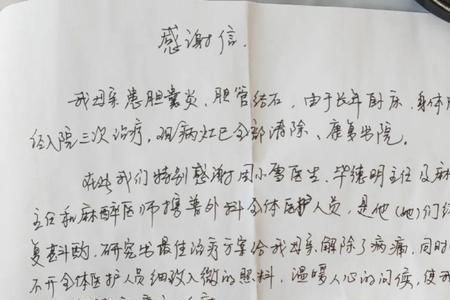 感谢信.
我母亲患胆囊炎、胆管结石，由于长年卧床，身体
经入院三次治疗，现病灶已全部清除、康复出院。
在此我们特别感谢周小雪医生、毕德明主任及麻
主任和麻醉医师携普外科全体医护人员，是他(她)们
复斟酌，研究出最佳治疗方案给我母亲解除了病痛，同时
不开全体医护人员细致入微的照料，温暖人心的问候，使我